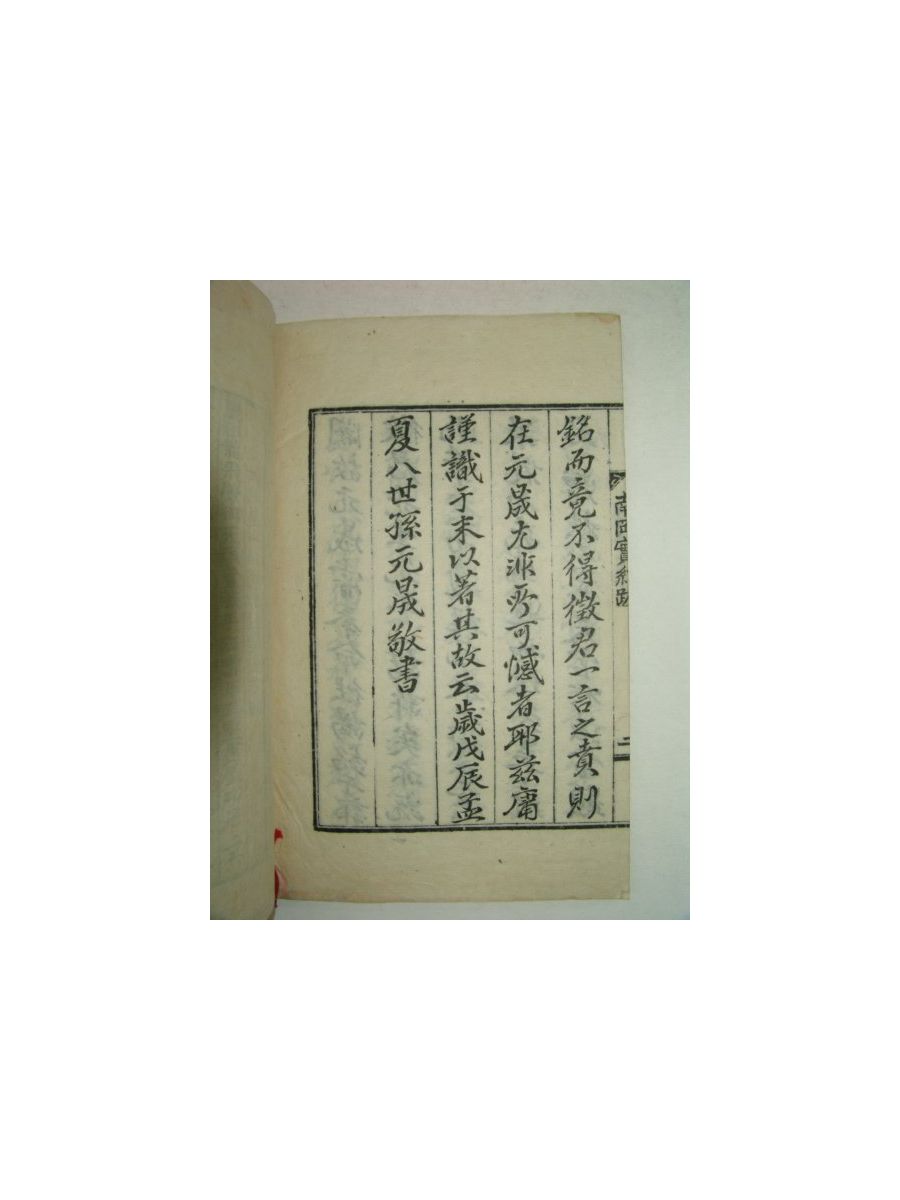 銘而竟不得徵君一言之賁則
在元晟尤非所可憾者耶茲庸
謹識于末以著其故云歲戊辰孟
夏八世孫元晟敬書
南岡實紀跋
二